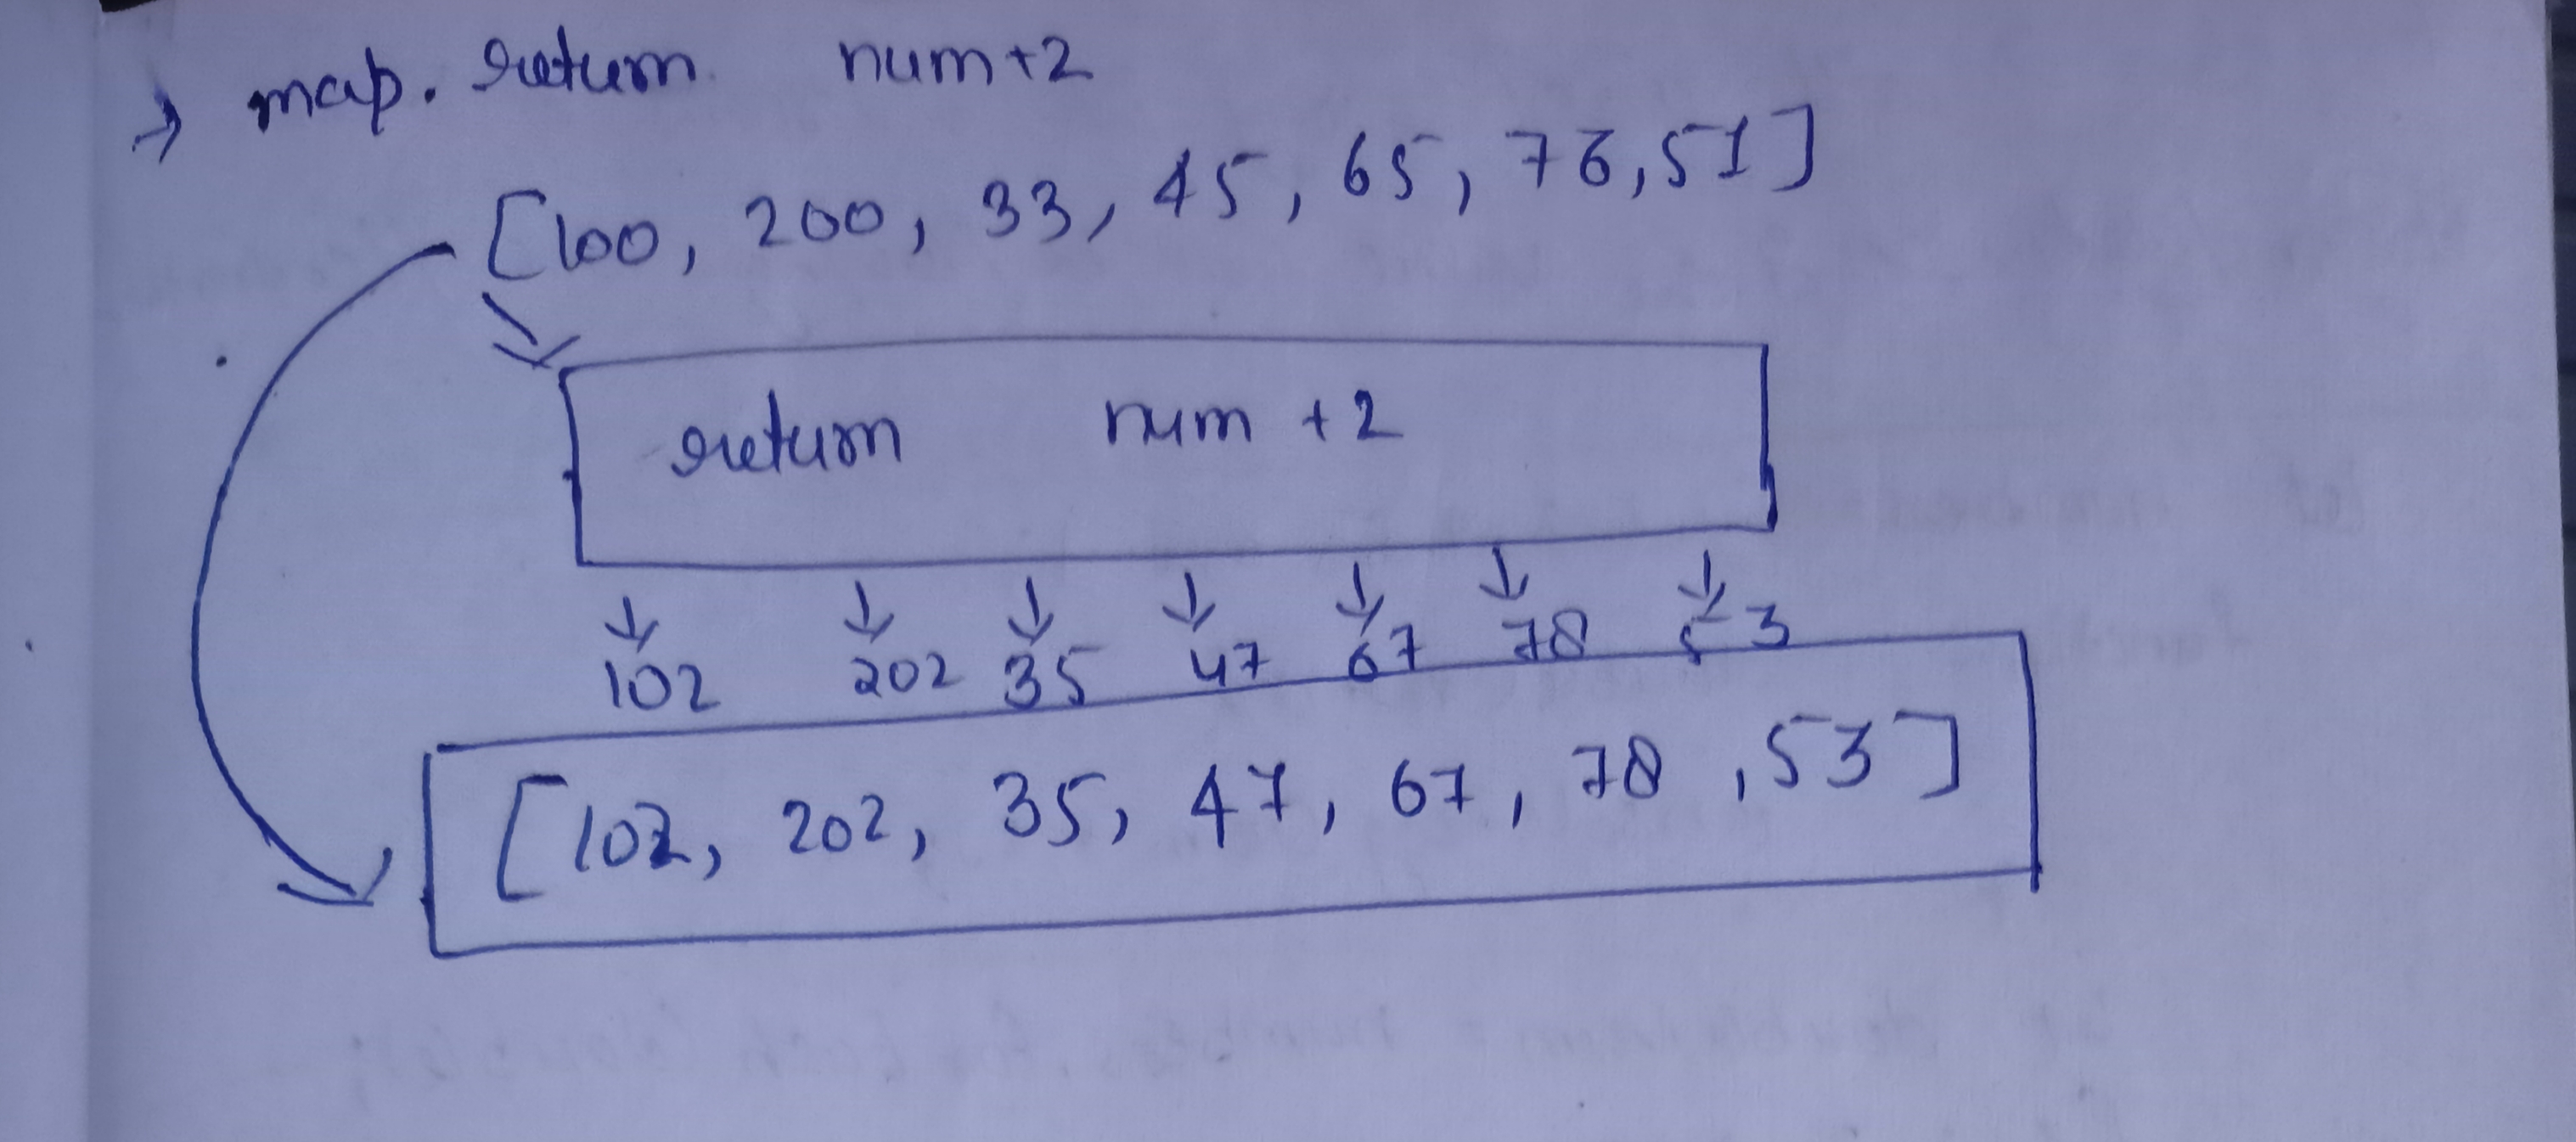 → map. return num+2
[100, 200, 33, 45, 65, 76, 51]
return num +2
102 202 35 47 67 78 53
[102, 202, 35, 47, 67, 78, 53]